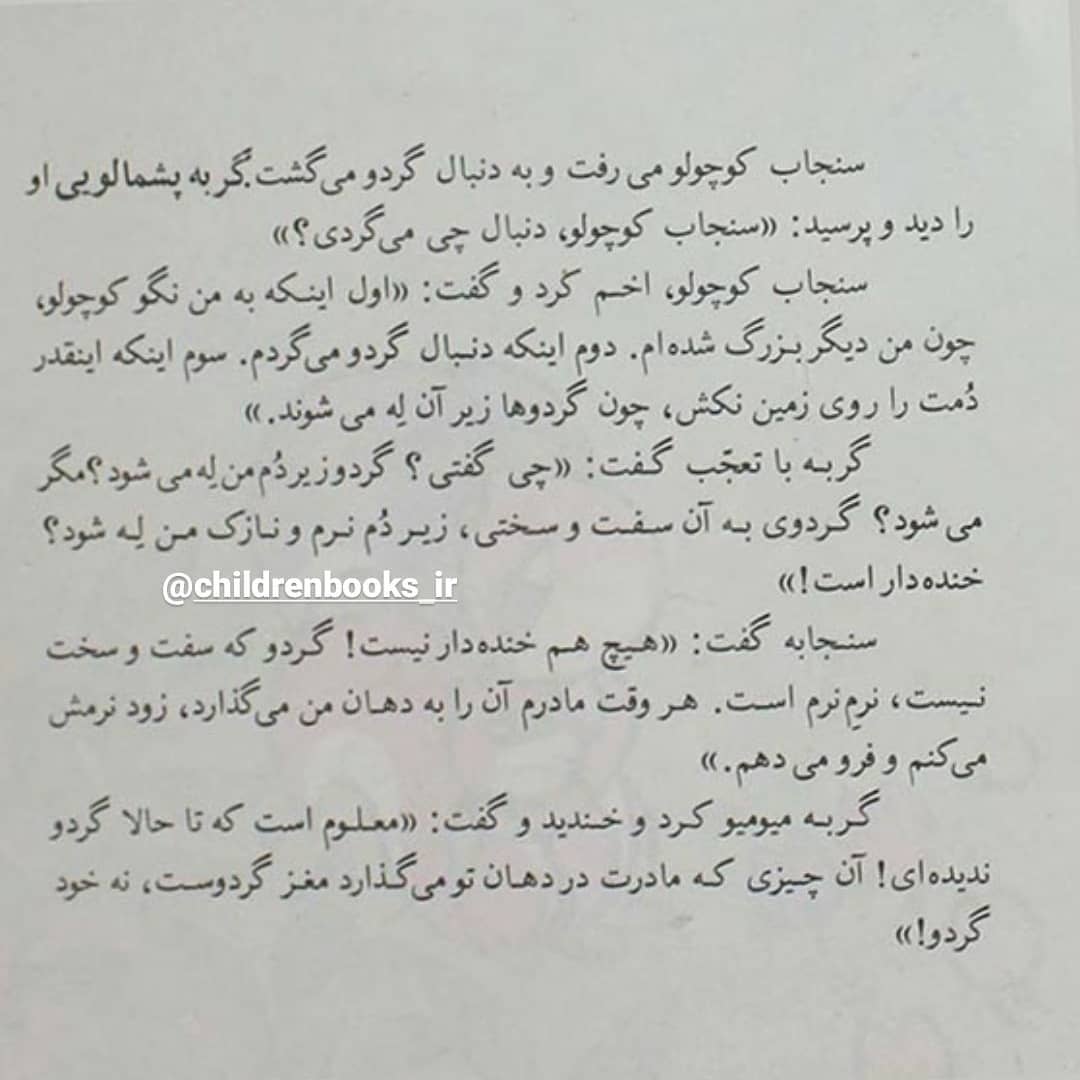 سنجاب کوچولو می رفت و به دنبال گردو می‌گشت. گربه پشمالویی او
را دید و پرسید: «سنجاب کوچولو، دنبال چی می‌گردی؟»
سنجاب کوچولو، اخم کرد و گفت: «اول اینکه به من نگو کوچولو،
چون من دیگر بزرگ شده‌ام. دوم اینکه دنبال گردو می‌گردم. سوم اینکه اینقدر
دُمت را روی زمین نکش، چون گردوها زیر آن لِه می شوند.»
گربه با تعجّب گفت: «چی گفتی؟ گردو زیر دُم من لِه می شود؟ مگر
می شود؟ گردوی به آن سفت و سختی، زیر دُم نرم و نازک من لِه شود؟
خنده‌دار است!»
@childrenbooks_ir
سنجابه گفت: «هیچ هم خنده‌دار نیست! گردو که سفت و سخت
نیست، نرمِ نرم است. هر وقت مادرم آن را به دهان من می‌گذارد، زود نرمش
می‌کنم و فرو می دهم.»
گربه میومیو کرد و خندید و گفت: «معلوم است که تا حالا گردو
ندیده‌ای! آن چیزی که مادرت در دهان تو می‌گذارد مغز گردوست، نه خود
گردو!»